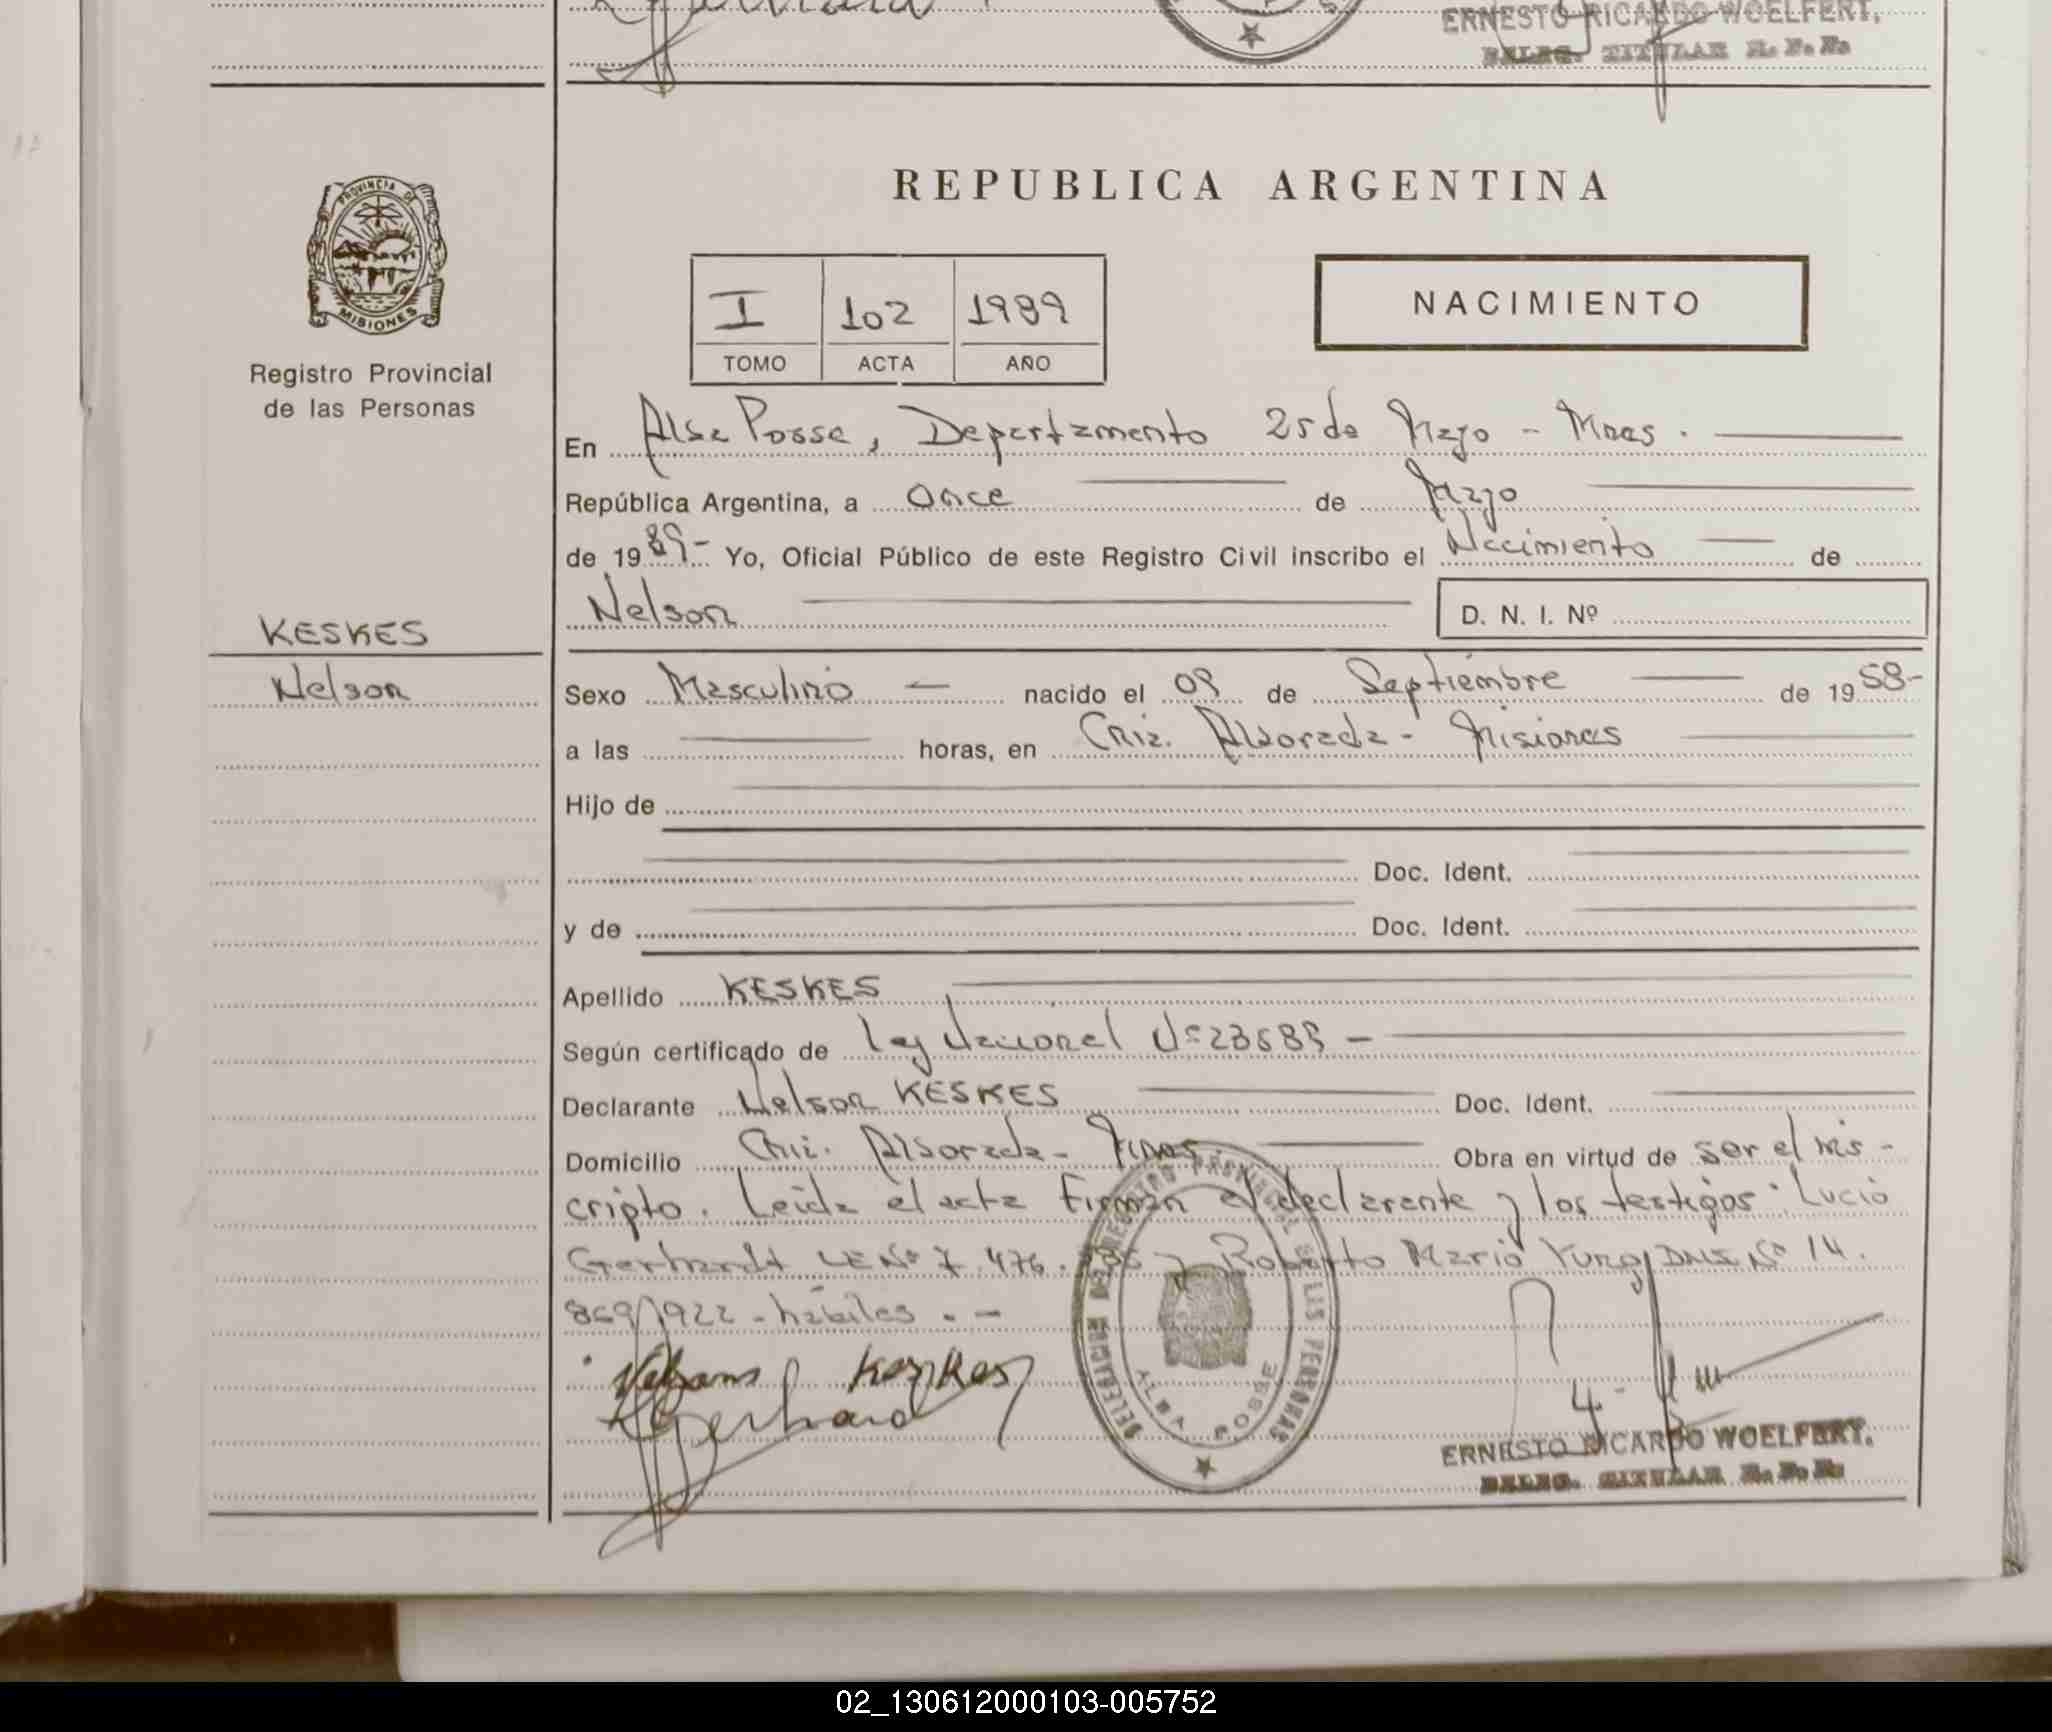 ERNESTO RICARDO WOELFERT.
DELEG. TITULAR R. P. P.
PROVINCIA DE
MISIONES
Registro Provincial
de las Personas
REPUBLICA ARGENTINA
I 102 1989
TOMO ACTA AÑO
NACIMIENTO
En Alba Posse, Departamento 25 de Mayo - Mnes. -
República Argentina, a Once de Mayo
de 1989- Yo, Oficial Público de este Registro Civil inscribo el Nacimiento de
Nelson D. N. I. Nº
KESKES
Nelson
Sexo Masculino nacido el 09 de Septiembre de 1958-
a las horas, en Cnia. Alborada - Misiones
Hijo de
Doc. Ident.
y de Doc. Ident.
Apellido KESKES
Según certificado de Ley Nacional Nº
Declarante Nelson KESKES Doc. Ident.
Domicilio Cnia. Alborada - Mnes. Obra en virtud de ser el ins-
cripto. Leída el acta Firman el declarante y los testigos: Lucio
Gerhardt LE Nº 7.476. y Roberto Mario DNI Nº 14.
869.922 - hábiles. -
Nelson Keskes
Gerhard
DELEGACION REGISTRO PROVINCIAL DE LAS PERSONAS
ALBA POSSE
ERNESTO RICARDO WOELFERT.
DELEG. TITULAR R. P. P.
02_130612000103-005752